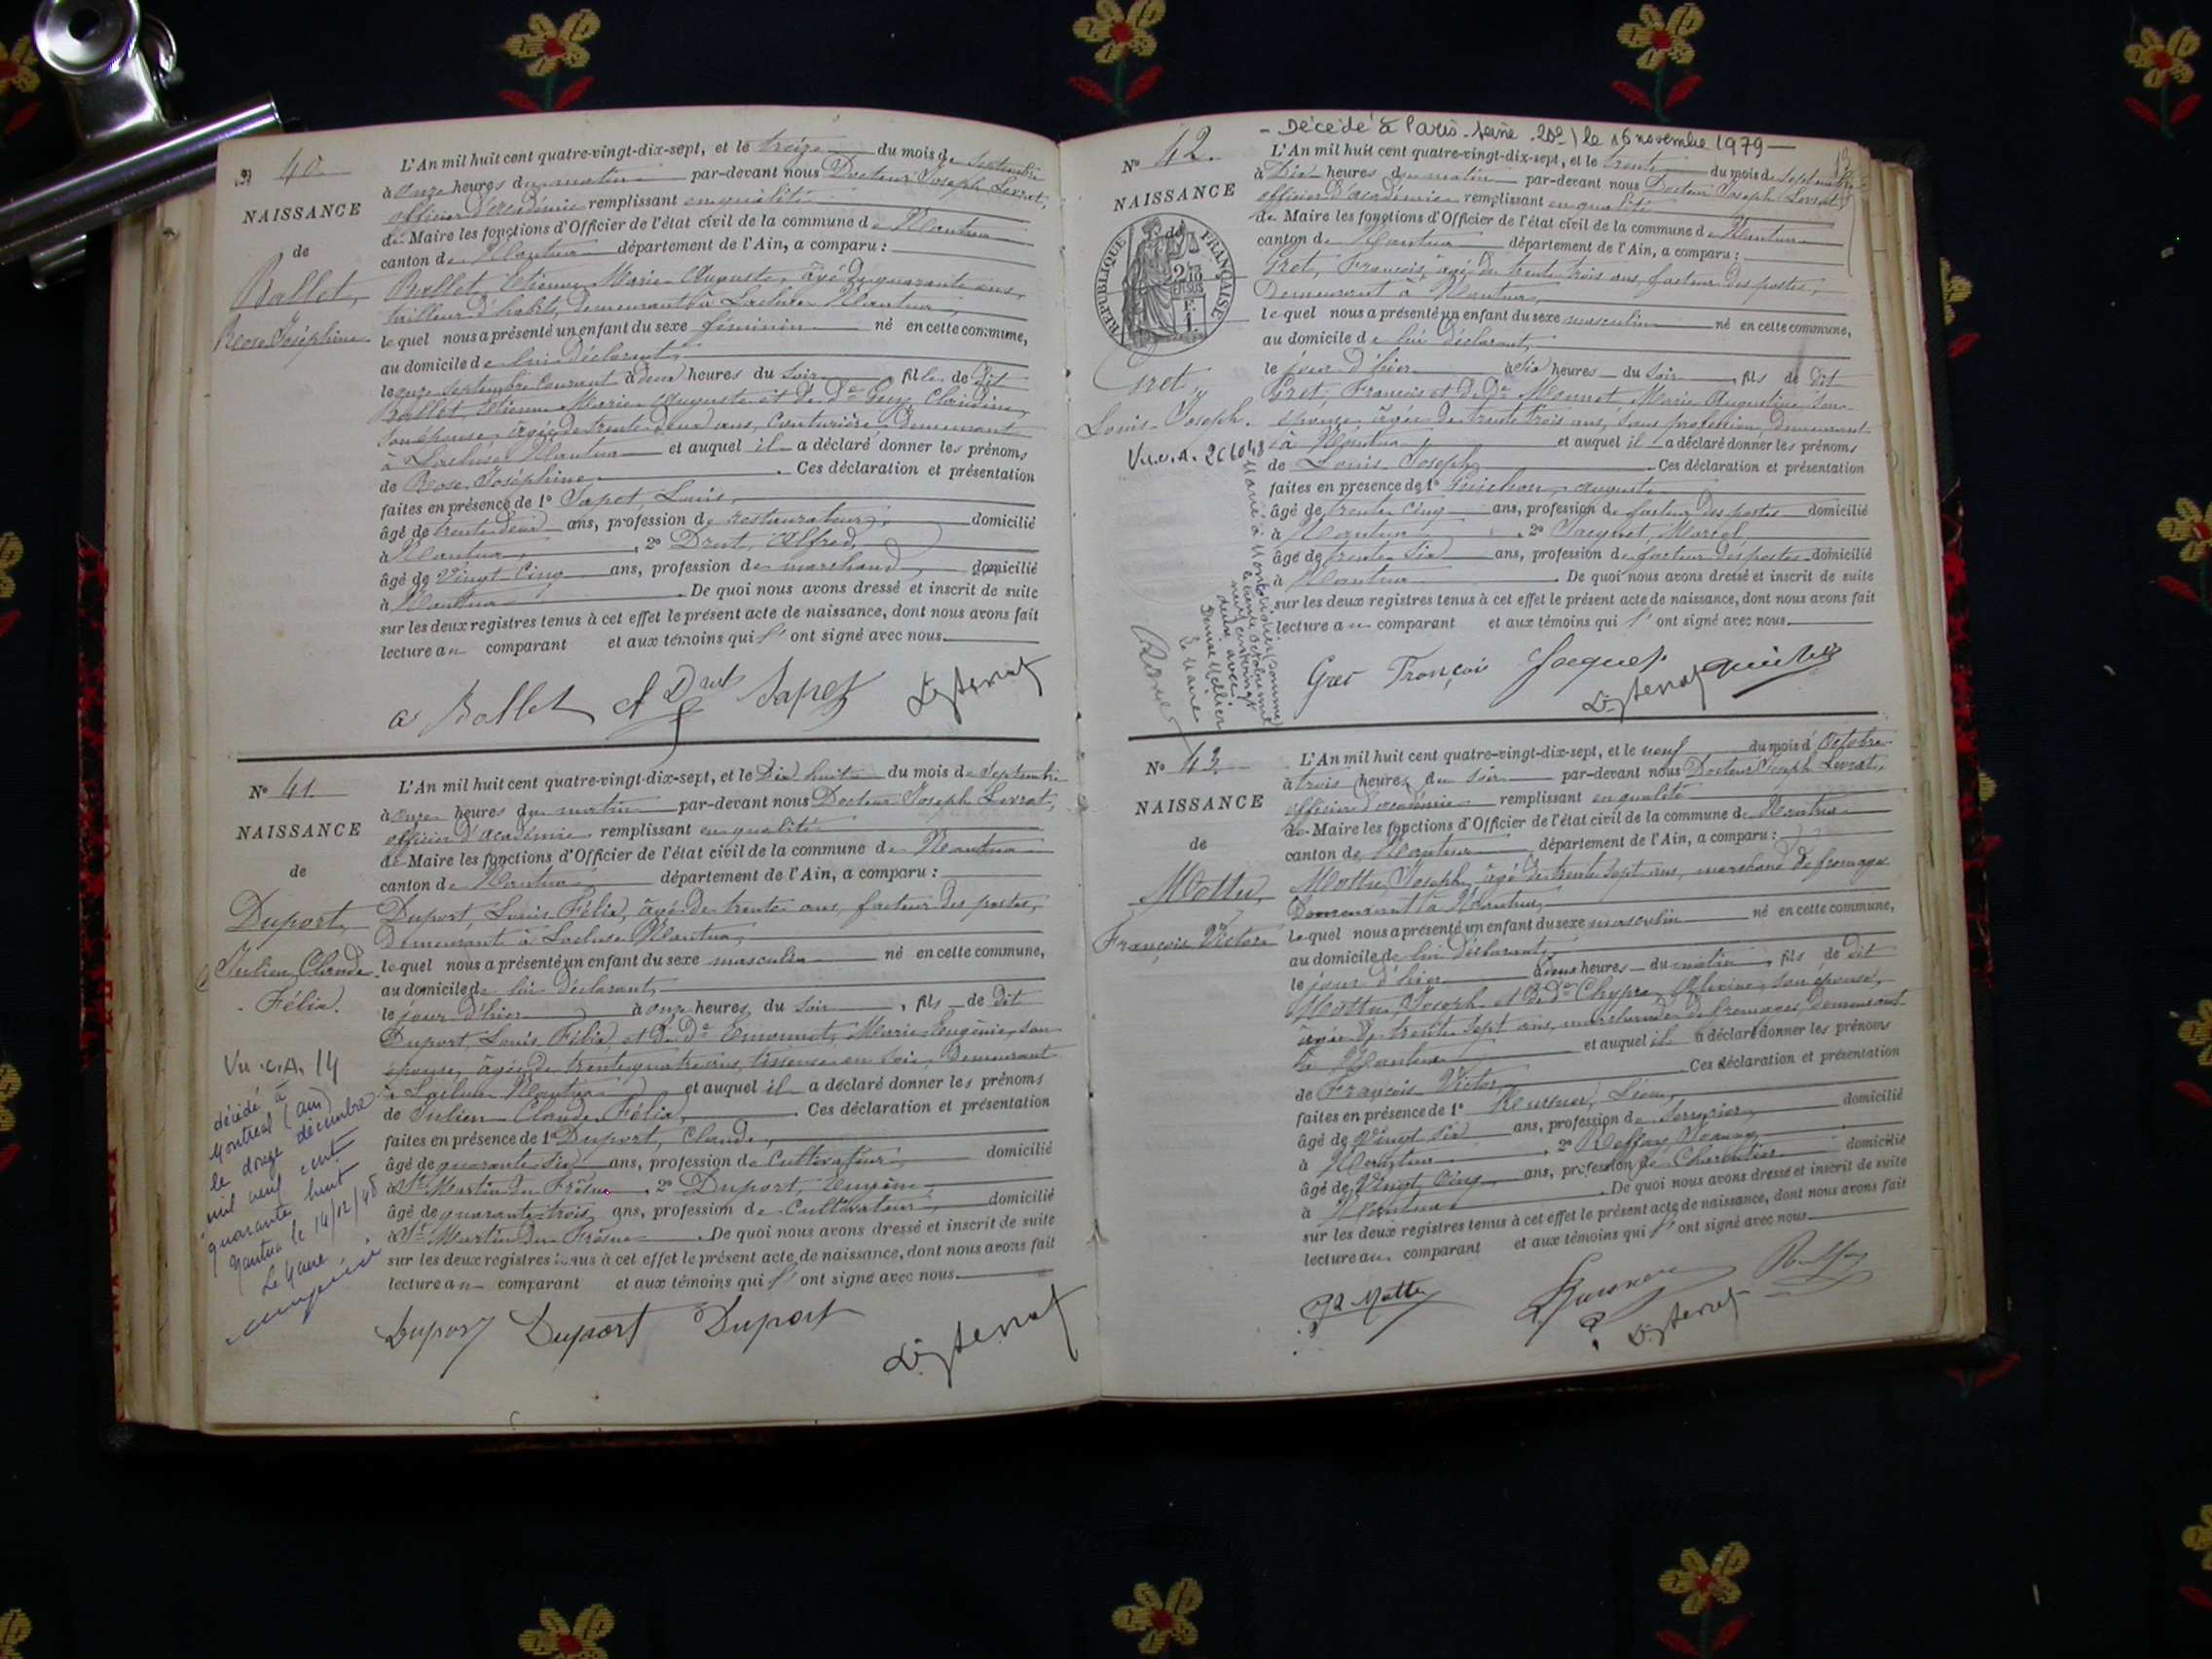 N° 40
NAISSANCE
de
Ballet,
Rose Joséphine
L'An mil huit cent quatre-vingt-dix-sept, et le treize du mois de Septembre
à onze heures du matin par-devant nous Docteur Joseph Levrat,
officier d'académie remplissant en qualité
de Maire les fonctions d'Officier de l'état civil de la commune de Nantua
canton de Nantua département de l'Ain, a comparu :
Ballet, Etienne Marie Auguste, âgé de quarante ans,
tailleur d'habits, demeurant à Lacluse Nantua,
lequel nous a présenté un enfant du sexe féminin né en cette commune,
au domicile de lui déclarant,
le onze Septembre Courant à deux heures du soir, fille de dit
Ballet, Etienne Marie Auguste et de De Guy, Claudine,
son épouse, âgée de trente deux ans, Couturière demeurant
à Lacluse Nantua et auquel il a déclaré donner les prénoms
de Rose Joséphine. Ces déclaration et présentation
faites en présence de 1° Sapet, Louis,
âgé de trente deux ans, profession de restaurateur, domicilié
à Nantua, 2° Drut, Alfred,
âgé de vingt cinq ans, profession de marchand, domicilié
à Nantua. De quoi nous avons dressé et inscrit de suite
sur les deux registres tenus à cet effet le présent acte de naissance, dont nous avons fait
lecture au comparant et aux témoins qui l'ont signé avec nous.
a Ballet A Drut Sapet
Dr J Levrat
N° 41
NAISSANCE
de
Duport,
Julien Claude
Félix.
Vu .C.A. 14
décédé à
Montreal (ain)
le douze décembre
mil neuf cent
quarante huit
Nantua le 14/12/48
Le Maire
L'An mil huit cent quatre-vingt-dix-sept, et le Dix huit du mois de Septembre
à onze heures du matin par-devant nous Docteur Joseph Levrat,
officier d'académie remplissant en qualité
de Maire les fonctions d'Officier de l'état civil de la commune de Nantua
canton de Nantua département de l'Ain, a comparu :
Duport Louis Félix, âgé de trente ans, facteur des postes,
demeurant à Lacluse Nantua,
lequel nous a présenté un enfant du sexe masculin né en cette commune,
au domicile de lui déclarant,
le jour d'hier à onze heures du soir, fils de dit
Duport, Louis Félix et de De Marie Eugénie, son
épouse, âgée de trente quatre ans, tisseuse en soie, demeurant
à Lacluse Nantua et auquel il a déclaré donner les prénoms
de Julien Claude Félix, Ces déclaration et présentation
faites en présence de 1° Duport, Claude,
âgé de quarante six ans, profession de Cultivateur, domicilié
à St Martin du Frêne, 2° Duport, Eugène,
âgé de quarante trois ans, profession de Cultivateur, domicilié
à St Martin du Frêne. De quoi nous avons dressé et inscrit de suite
sur les deux registres tenus à cet effet le présent acte de naissance, dont nous avons fait
lecture au comparant et aux témoins qui l'ont signé avec nous.
Duport Duport Duport
Dr J Levrat
- Décédé à Paris - Seine - 20e) le 16 novembre 1979 -
N° 42.
NAISSANCE
de
RÉPUBLIQUE FRANÇAISE
Gret,
Louis Joseph.
L'An mil huit cent quatre-vingt-dix-sept, et le trente du mois de Septembre
à Dix heures du matin par-devant nous Docteur Joseph Levrat,
officier d'académie remplissant en qualité
de Maire les fonctions d'Officier de l'état civil de la commune de Nantua
canton de Nantua département de l'Ain, a comparu :
Gret, François, âgé de trente trois ans, facteur des postes,
Demeurant à Nantua,
lequel nous a présenté un enfant du sexe masculin né en cette commune,
au domicile de lui déclarant,
le jour d'hier à dix heures du soir, fils de dit
Gret, François et de De Monnet Marie Augustine son
épouse, âgée de trente trois ans, sans profession, demeurant
à Nantua et auquel il a déclaré donner les prénoms
de Louis Joseph. Ces déclaration et présentation
faites en présence de 1° Guichon, Auguste
âgé de trente cinq ans, profession de facteur des postes domicilié
à Nantua, 2° Jacquet, Marcel,
âgé de trente six ans, profession de facteur des postes domicilié
à Nantua. De quoi nous avons dressé et inscrit de suite
sur les deux registres tenus à cet effet le présent acte de naissance, dont nous avons fait
lecture au comparant et aux témoins qui l'ont signé avec nous.
Gret François Jacquet
Dr J Levrat
N° 43.
NAISSANCE
de
Mottu,
François Victor
L'An mil huit cent quatre-vingt-dix-sept, et le neuf du mois d'Octobre
à trois heures du soir par-devant nous Docteur Joseph Levrat,
officier d'académie remplissant en qualité
de Maire les fonctions d'Officier de l'état civil de la commune de Nantua
canton de Nantua département de l'Ain, a comparu :
Mottu, Joseph, âgé de trente sept ans, marchand de fromages
Demeurant à Nantua,
lequel nous a présenté un enfant du sexe masculin né en cette commune,
au domicile de lui déclarant,
le jour d'hier à deux heures du matin, fils de dit
Mottu, Joseph et de De son épouse,
âgée de trente sept ans, marchande de fromages, demeurant
à Nantua et auquel il a déclaré donner les prénoms
de François Victor Ces déclaration et présentation
faites en présence de 1° Léon,
âgé de vingt six ans, profession de Serrurier, domicilié
à Nantua, 2°
âgé de vingt cinq ans, profession de Charcutier domicilié
à Nantua. De quoi nous avons dressé et inscrit de suite
sur les deux registres tenus à cet effet le présent acte de naissance, dont nous avons fait
lecture au comparant et aux témoins qui l'ont signé avec nous.
Dr J Levrat